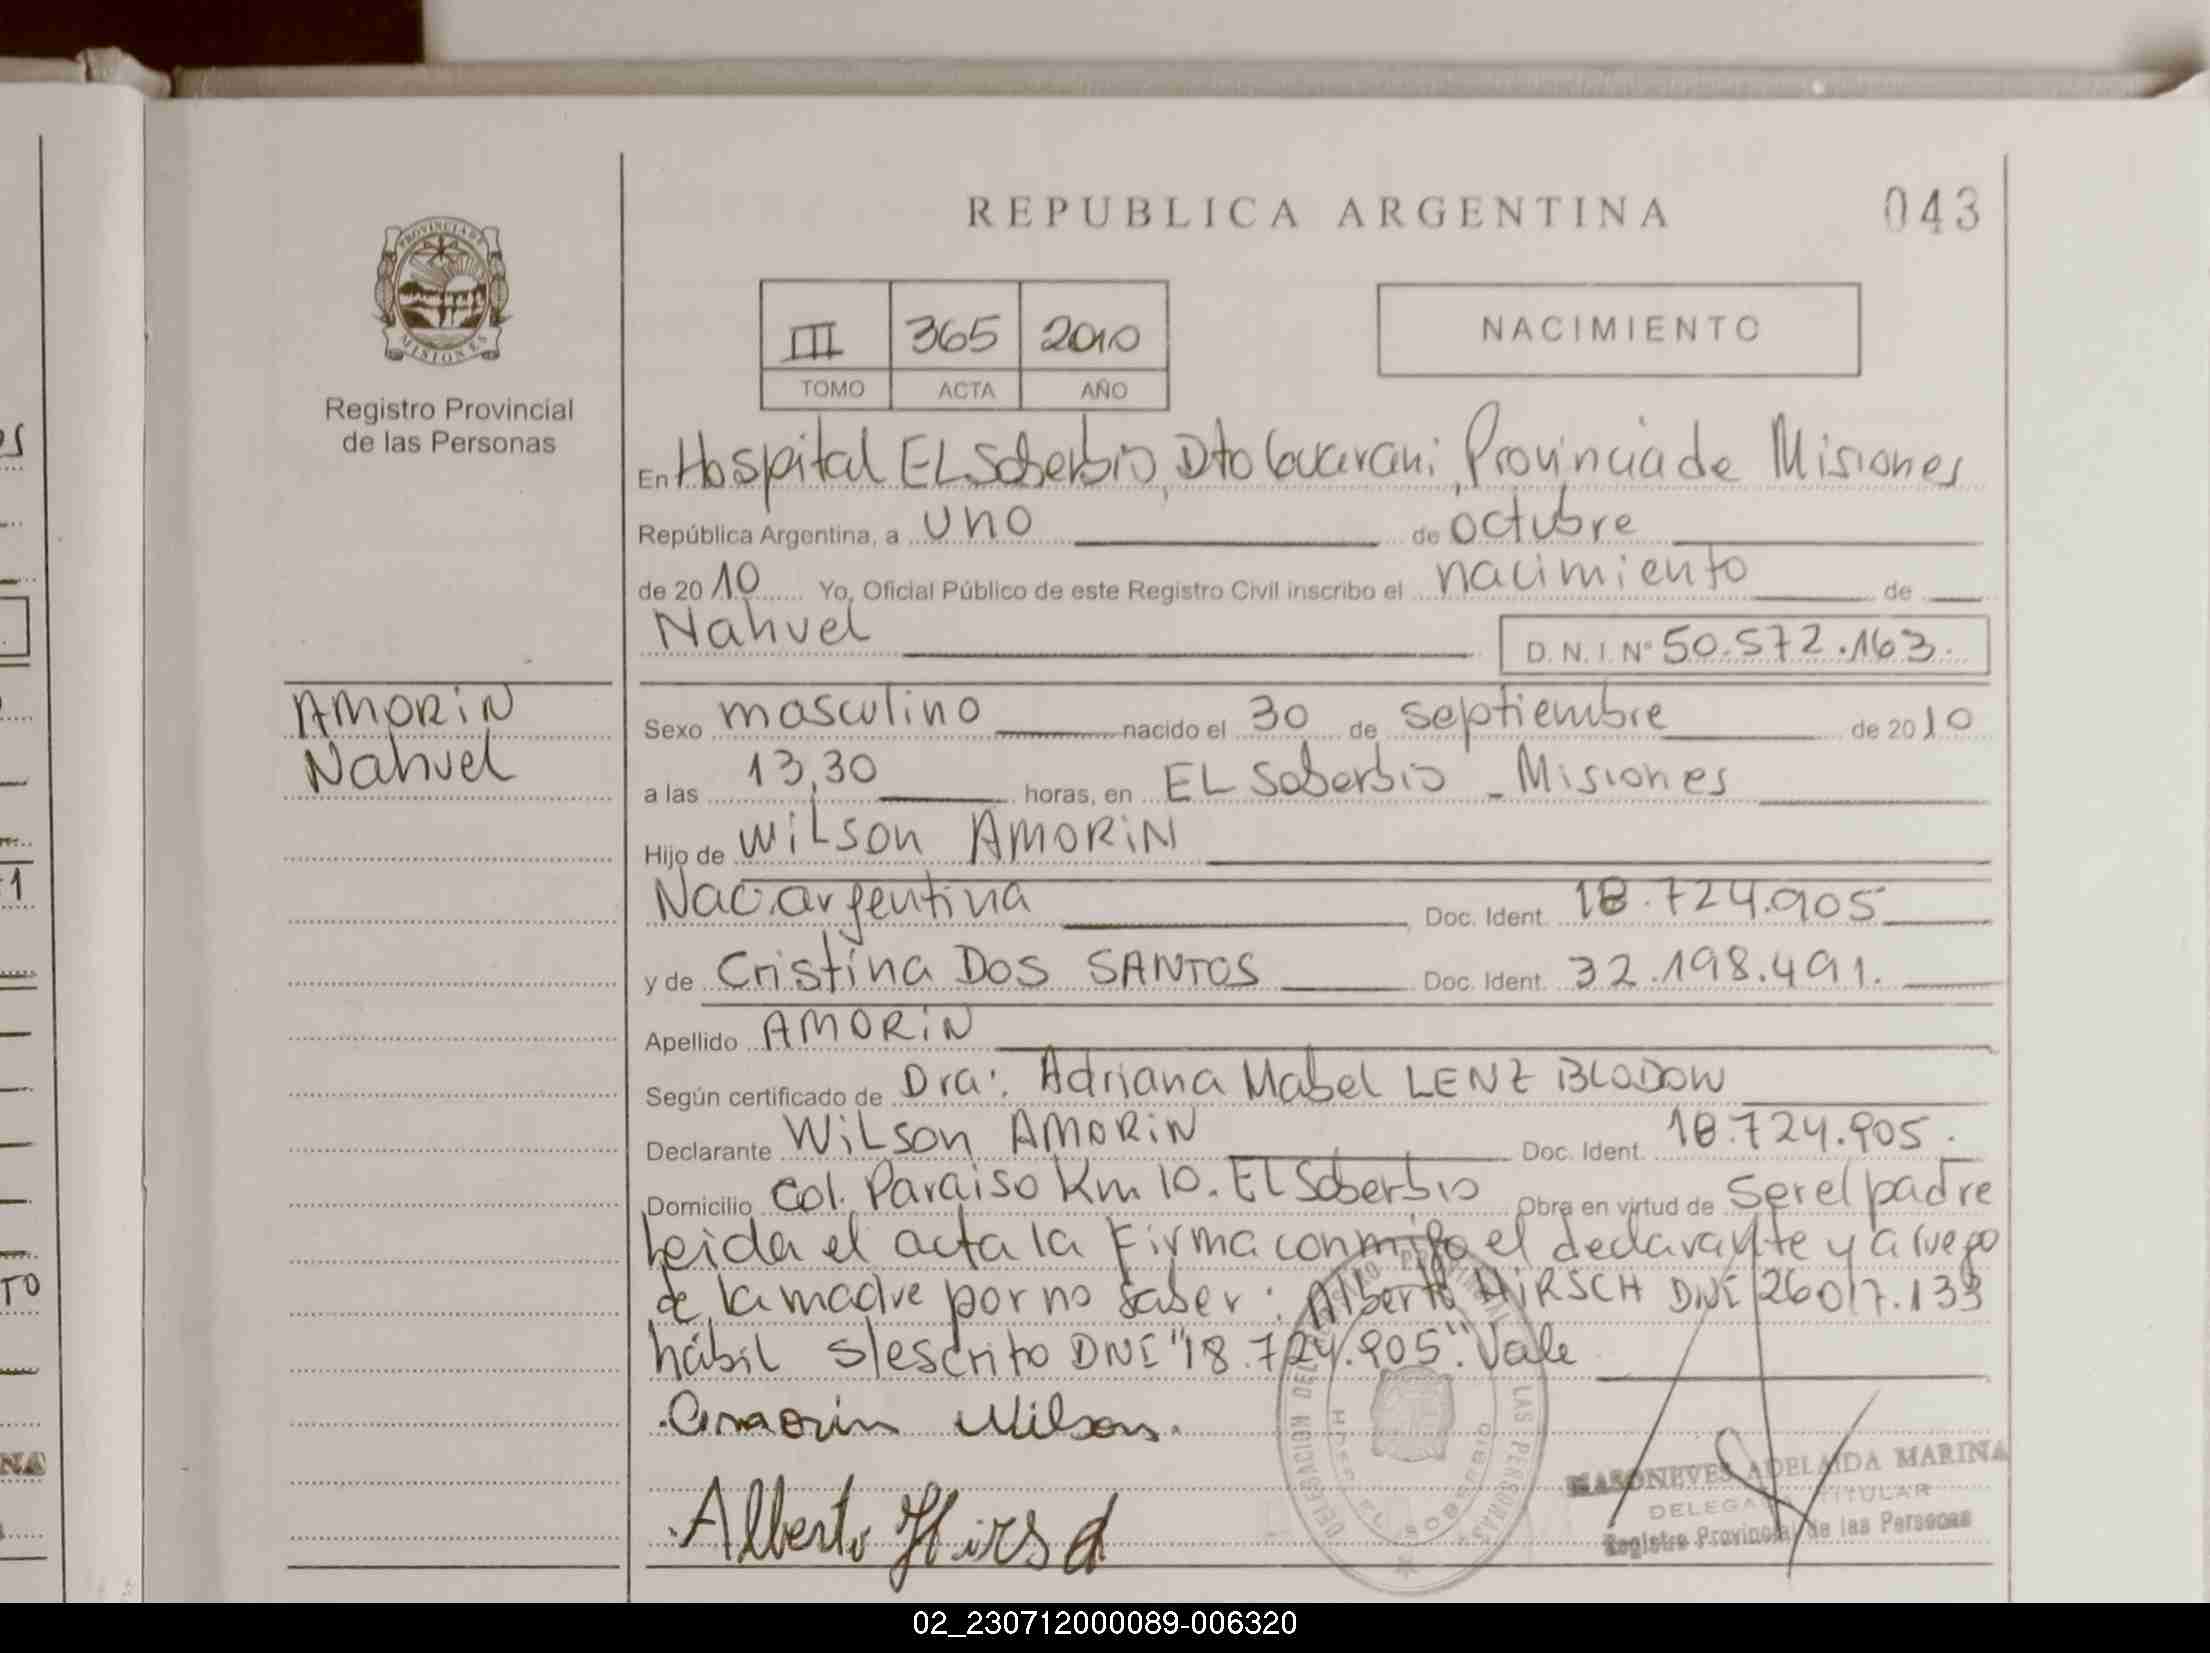 REPUBLICA ARGENTINA
043
PROVINCIA DE MISIONES
Registro Provincial
de las Personas
III 365 2010
TOMO ACTA AÑO
NACIMIENTO
En Hospital EL Soberbio, Dto Guarani, Provincia de Misiones
República Argentina, a uno de octubre
de 2010 Yo, Oficial Público de este Registro Civil inscribo el nacimiento de
Nahuel D. N. I. Nº 50.572.163.
AMORIN
Nahuel
Sexo masculino nacido el 30 de septiembre de 2010
a las 13,30 horas, en EL Soberbio - Misiones
Hijo de WiLson AMORiN
Nac. argentina Doc. Ident. 18.724.905
y de Cristina DOS SANTOS Doc. Ident. 32.198.491.
Apellido AMORiN
Según certificado de Dra: Adriana Mabel LENZ BLODOW
Declarante WiLson AMORiN Doc. Ident. 18.724.905.
Domicilio Col. Paraiso Km 10. EL Soberbio Obra en virtud de Ser el padre
Leida el acta la Firma conmigo el declarante y a ruego
de la madre por no saber: Alberto HiRSCH DNI 26017.133
hábil s/escrito DNI "18.724.905". Vale
Amorin Wilson.
Alberto Hirsch
DELEGACION DEL REGISTRO PROVINCIAL DE LAS PERSONAS
HOSP. EL SOBERBIO
MASONEVES ADELAIDA MARINA
DELEGADA TITULAR
Registro Provincial de las Personas
es
1
TO
NA
02_230712000089-006320